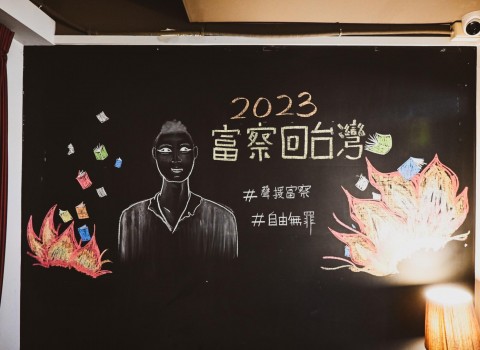 2023
富察回台灣
#聲援富察
#自由無罪